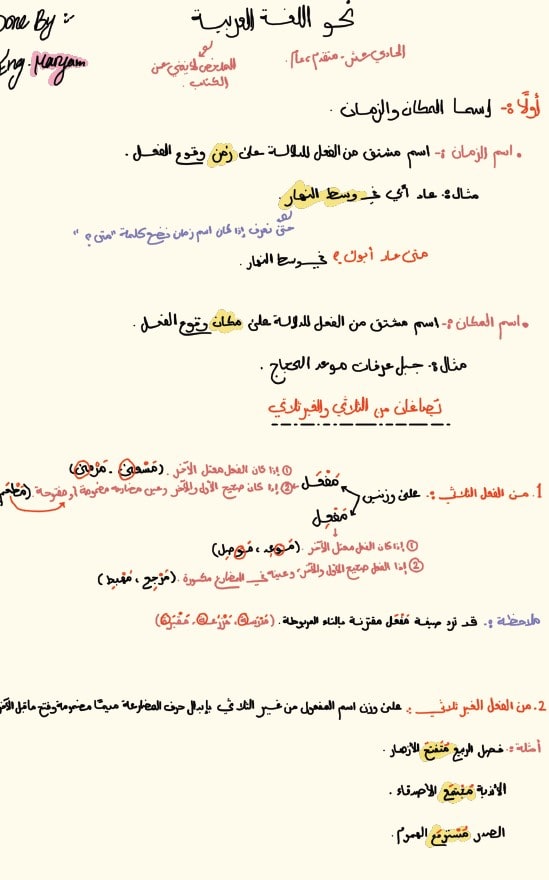 نحو اللغة العربية
Done By :-
Eng. Maryam
الحادي عشر - متقدم، عام.
الملخص لا يغني عن الكتاب.
أولًا :- اسما المكان والزمان.
• اسم الزمان :- اسم مشتق من الفعل للدلالة على زمن وقوع الفعل.
مثال :- عاد أبي في وسط النهار.
حتى نعرف إذا كان اسم زمان نضع كلمة "متى؟"
متى عاد أبوك؟ في وسط النهار.
• اسم المكان :- اسم مشتق من الفعل للدلالة على مكان وقوع الفعل.
مثال :- جبل عرفات موعد الحجاج.
يُصاغان من الثلاثي والغير ثلاثي
1. من الفعل الثلاثي :- على وزنين
مَفْعَل
① إذا كان الفعل معتل الآخر. (مَسْعى، مَرْمى)
② إذا كان صحيح الأول والآخر وعين مضارعه مضمومة أو مفتوحة. (مَطْعَم
مَفْعِل
① إذا كان الفعل معتل
(مَوعِد، مَوصِل)
② إذا الفعل صحيح الأول والآخر، وعينه في المضارع مكسورة. (مَرْجِع، مَهْبِط)
ملاحظة :- قد ترد صيغة مَفْعَل مقترنة بالتاء المربوطة. (مَدْرَسة، مَزْرَعة، مَقْبَرة)
2. من الفعل الغير ثلاثي :- على وزن اسم المفعول من غير الثلاثي بإبدال حرف المضارعة ميمًا مضمومة وفتح ماقبل الآخر
أمثلة :- فصل الربيع مُتفتَح الأزهار.
الأندية مُجتمَع الأصدقاء.
الصدر مُستودَع الهموم.